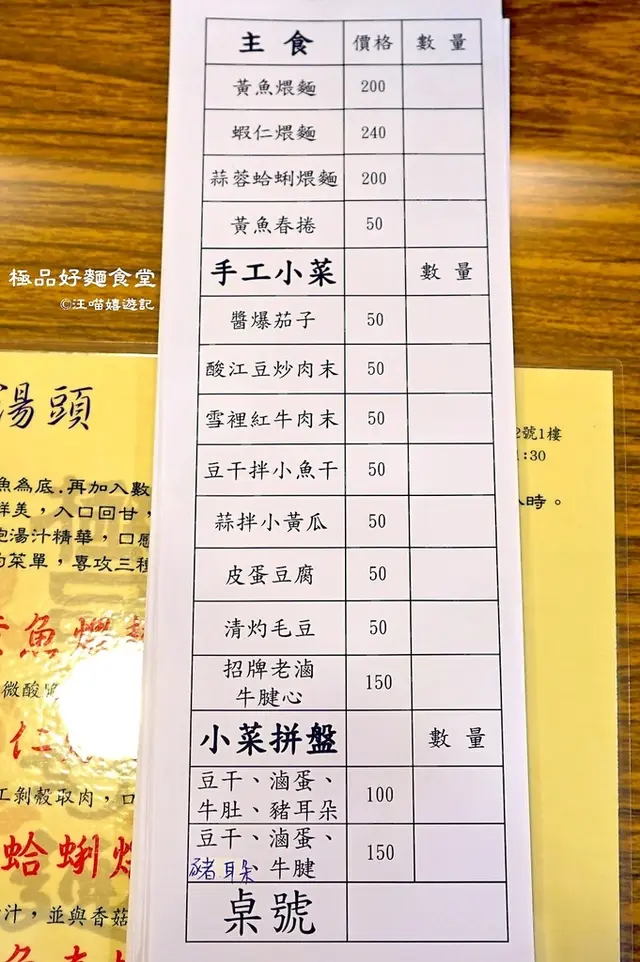 主食 價格 數量
黃魚煨麵 200
蝦仁煨麵 240
蒜蓉蛤蜊煨麵 200
黃魚春捲 50
手工小菜 數量
醬爆茄子 50
酸江豆炒肉末 50
雪裡紅牛肉末 50
豆干拌小魚干 50
蒜拌小黃瓜 50
皮蛋豆腐 50
清灼毛豆 50
招牌老滷
牛腱心 150
小菜拼盤 數量
豆干、滷蛋、
牛肚、豬耳朵 100
豆干、滷蛋、
豬耳朵 牛腱 150
桌號
極品好麵食堂
©汪喵嬉遊記
湯頭
魚為底,再加入數
鮮美,入口回甘,
湯汁精華,口感
的菜單,專攻三種
魚煨麵
微酸
仁
工剝殼取肉,口
蛤蜊煨
汁,並與香菇
魚春捲
2號1樓
:30
小時。